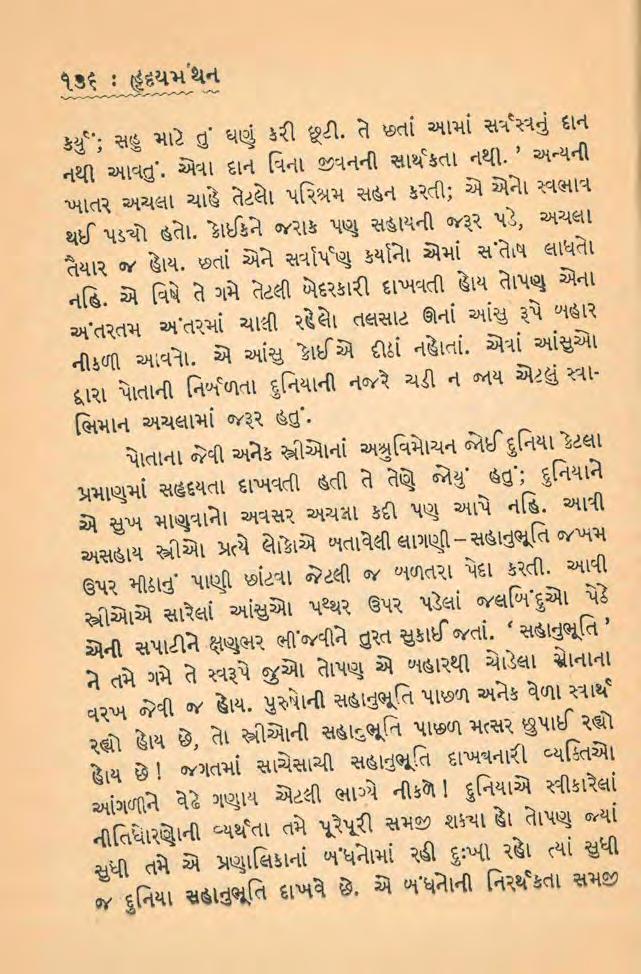 ૧૭૬ : હૃદયમંથન
કર્યું; સહુ માટે તું ઘણું કરી છૂટી. તે છતાં આમાં સર્વસ્વનું દાન
નથી આવતું. એવા દાન વિના જીવનની સાર્થકતા નથી. ’ અન્યની
ખાતર અચલા ચાહે તેટલો પરિશ્રમ સહન કરતી; એ એનો સ્વભાવ
થઈ પડ્યો હતો. કોઈકને જરાક પણ સહાયની જરૂર પડે, અચલા
તૈયાર જ હોય. છતાં એને સર્વાર્પણ કર્યાનો એમાં સંતોષ લાધતો
નહિ. એ વિષે તે ગમે તેટલી બેદરકારી દાખવતી હોય તોપણ એના
અંતરતમ અંતરમાં ચાલી રહેલો તલસાટ ઊનાં આંસુ રૂપે બહાર
નીકળી આવતો. એ આંસુ કોઈએ દીઠાં નહોતાં. એવાં આંસુઓ
દ્વારા પોતાની નિર્બળતા દુનિયાની નજરે ચડી ન જાય એટલું સ્વા-
ભિમાન અચલામાં જરૂર હતું.
પોતાના જેવી અનેક સ્ત્રીઓનાં અશ્રુવિમોચન જોઈ દુનિયા કેટલા
પ્રમાણમાં સહૃદયતા દાખવતી હતી તે તેણે જોયું હતું; દુનિયાને
એ સુખ માણવાનો અવસર અચલા કદી પણ આપે નહિ. આવી
અસહાય સ્ત્રીઓ પ્રત્યે લોકોએ બતાવેલી લાગણી – સહાનુભૂતિ જખમ
ઉપર મીઠાનું પાણી છાંટવા જેટલી જ બળતરા પેદા કરતી. આવી
સ્ત્રીઓએ સારેલાં આંસુઓ પથ્થર ઉપર પડેલાં જલબિંદુઓ પેઠે
એની સપાટીને ક્ષણભર ભીંજવીને તુરત સુકાઈ જતાં. ‘ સહાનુભૂતિ ’
ને તમે ગમે તે સ્વરૂપે જુઓ તોપણ એ બહારથી ચોડેલા સોનાના
વરખ જેવી જ હોય. પુરુષોની સહાનુભૂતિ પાછળ અનેક વેળા સ્વાર્થ
રહ્યો હોય છે, તો સ્ત્રીઓની સહાનુભૂતિ પાછળ મત્સર છુપાઈ રહ્યો
હોય છે! જગતમાં સાચેસાચી સહાનુભૂતિ દાખવનારી વ્યક્તિઓ
આંગળીને વેઢે ગણાય એટલી ભાગ્યે નીકળે! દુનિયાએ સ્વીકારેલાં
નીતિધોરણોની વ્યર્થતા તમે પૂરેપૂરી સમજી શક્યા હો તોપણ જ્યાં
સુધી તમે એ પ્રણાલિકાનાં બંધનોમાં રહી દુઃખી રહો ત્યાં સુધી
જ દુનિયા સહાનુભૂતિ દાખવે છે. એ બંધનોની નિરર્થકતા સમજી